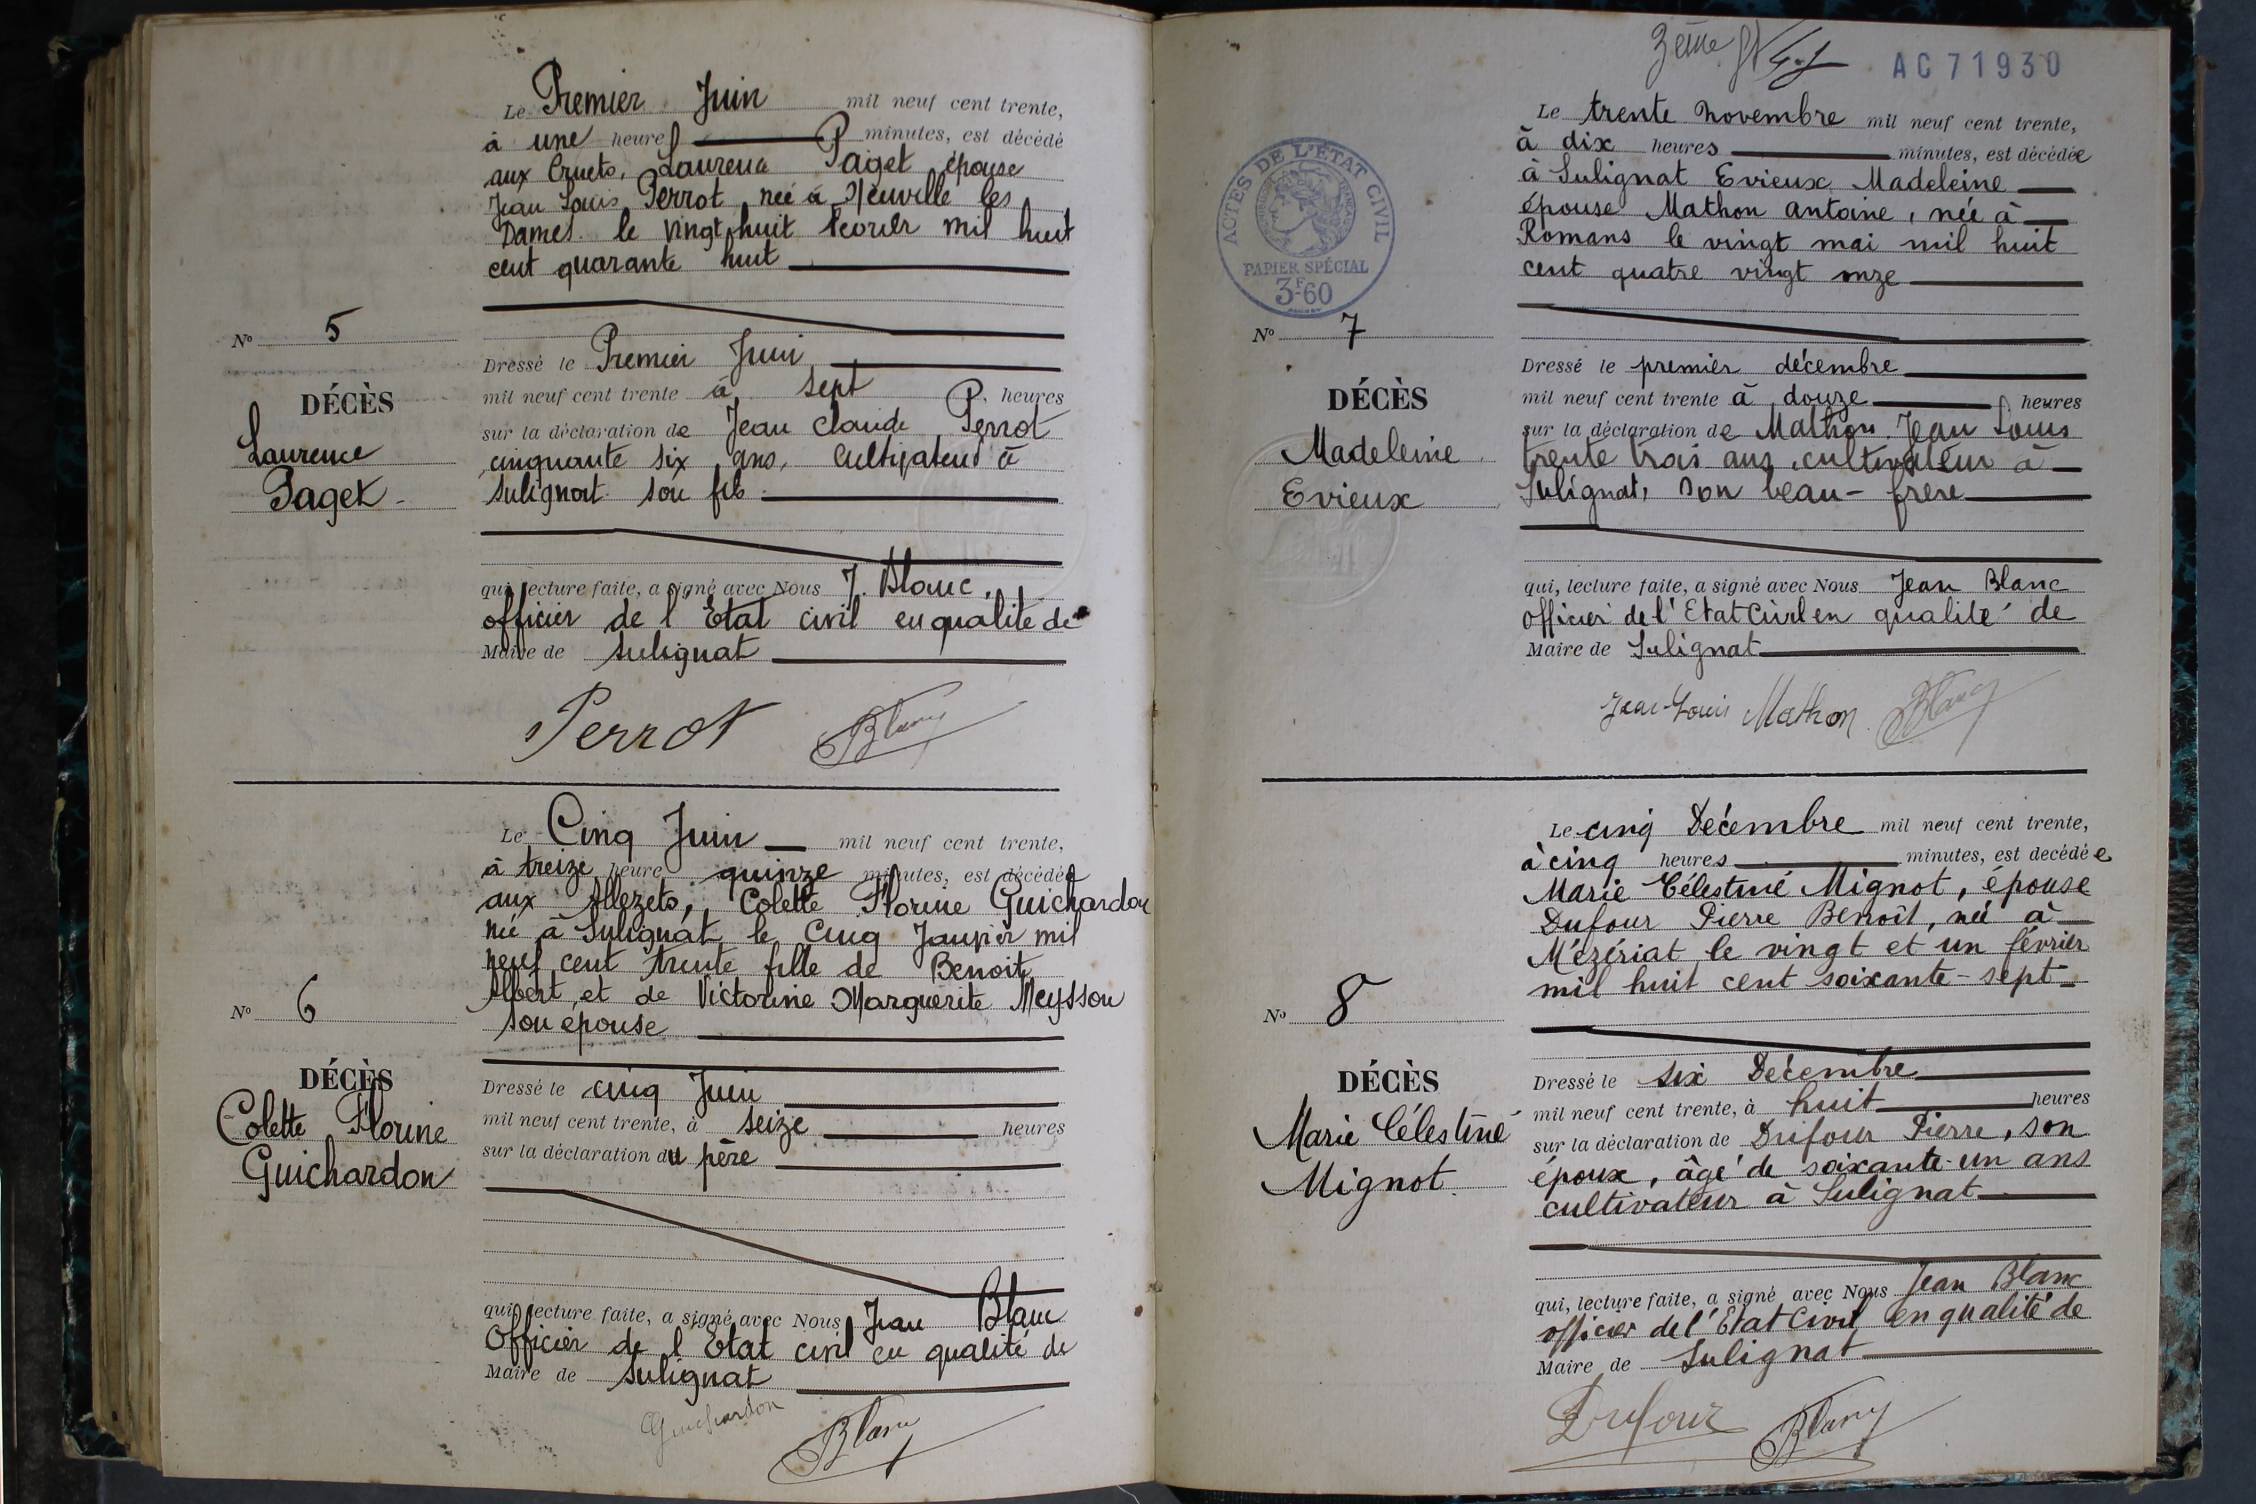 Le Premier Juin mil neuf cent trente,
à une heure minutes, est décédé
aux Cruets, Laurence Paget épouse
Jean Louis Perrot née à Neuville les
Dames le vingt huit février mil huit
cent quarante huit
N° 5
DÉCÈS
Laurence
Paget
Dressé le Premier Juin
mil neuf cent trente à sept heures
sur la déclaration de Jean Claude Perrot
cinquante six ans, cultivateur à
Sulignat son fils
qui, lecture faite, a signé avec Nous J. Blanc,
officier de l'Etat civil en qualité de
Maire de Sulignat
Perrot Blanc
Le Cinq Juin mil neuf cent trente,
à treize heure quinze minutes, est décédée
aux Allezets, Colette Florine Guichardon
née à Sulignat le cinq Janvier mil
neuf cent trente fille de Benoit
Albert et de Victorine Marguerite Meysson
son épouse
N° 6
DÉCÈS
Colette Florine
Guichardon
Dressé le cinq Juin
mil neuf cent trente, à seize heures
sur la déclaration du père
qui, lecture faite, a signé avec Nous Jean Blanc
Officier de l'Etat civil en qualité de
Maire de Sulignat
Guichardon Blanc
3ème
AC 71930
ACTES DE L'ÉTAT CIVIL
PAPIER SPÉCIAL
3F60
Le trente novembre mil neuf cent trente,
à dix heures minutes, est décédée
à Sulignat Evieux Madeleine
épouse Mathon antoine, née à
Romans le vingt mai mil huit
cent quatre vingt onze
N° 7
DÉCÈS
Madeleine
Evieux
Dressé le premier décembre
mil neuf cent trente à douze heures
sur la déclaration de Mathon Jean Louis
trente trois ans, cultivateur à
Sulignat, son beau-frère
qui, lecture faite, a signé avec Nous Jean Blanc
officier de l'Etat Civil en qualité de
Maire de Sulignat
Jean-Louis Mathon Blanc
Le cinq Décembre mil neuf cent trente,
à cinq heures minutes, est decédée
Marie Célestine Mignot, épouse
Dufour Pierre Benoît, née à
Mézériat le vingt et un février
mil huit cent soixante-sept
N° 8
DÉCÈS
Marie Célestine
Mignot
Dressé le six Décembre
mil neuf cent trente, à huit heures
sur la déclaration de Dufour Pierre, son
époux, âgé de soixante-un ans
cultivateur à Sulignat
qui, lecture faite, a signé avec Nous Jean Blanc
officier de l'Etat Civil en qualité de
Maire de Sulignat
Dufour Blanc